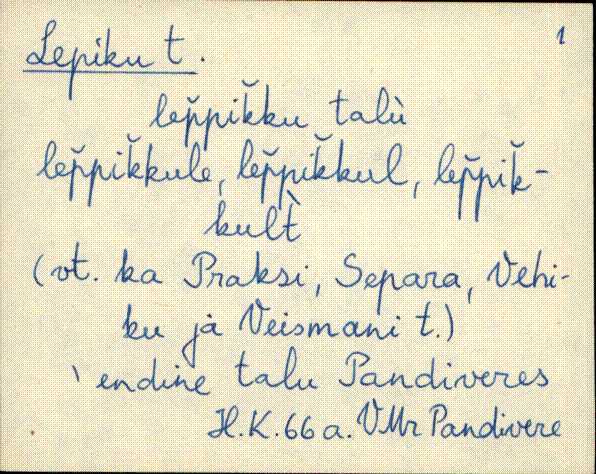 1
Lepiku t.
lep̆pik̆ku talù
lep̆pik̆kule, lep̆pik̆kul, lep̆pik̆-
kult̀
(vt. ka Praksi, Separa, Vehi-
ku ja Veismani t.)
ˋendine talu Pandiveres
H.K. 66 a. VMr Pandivere